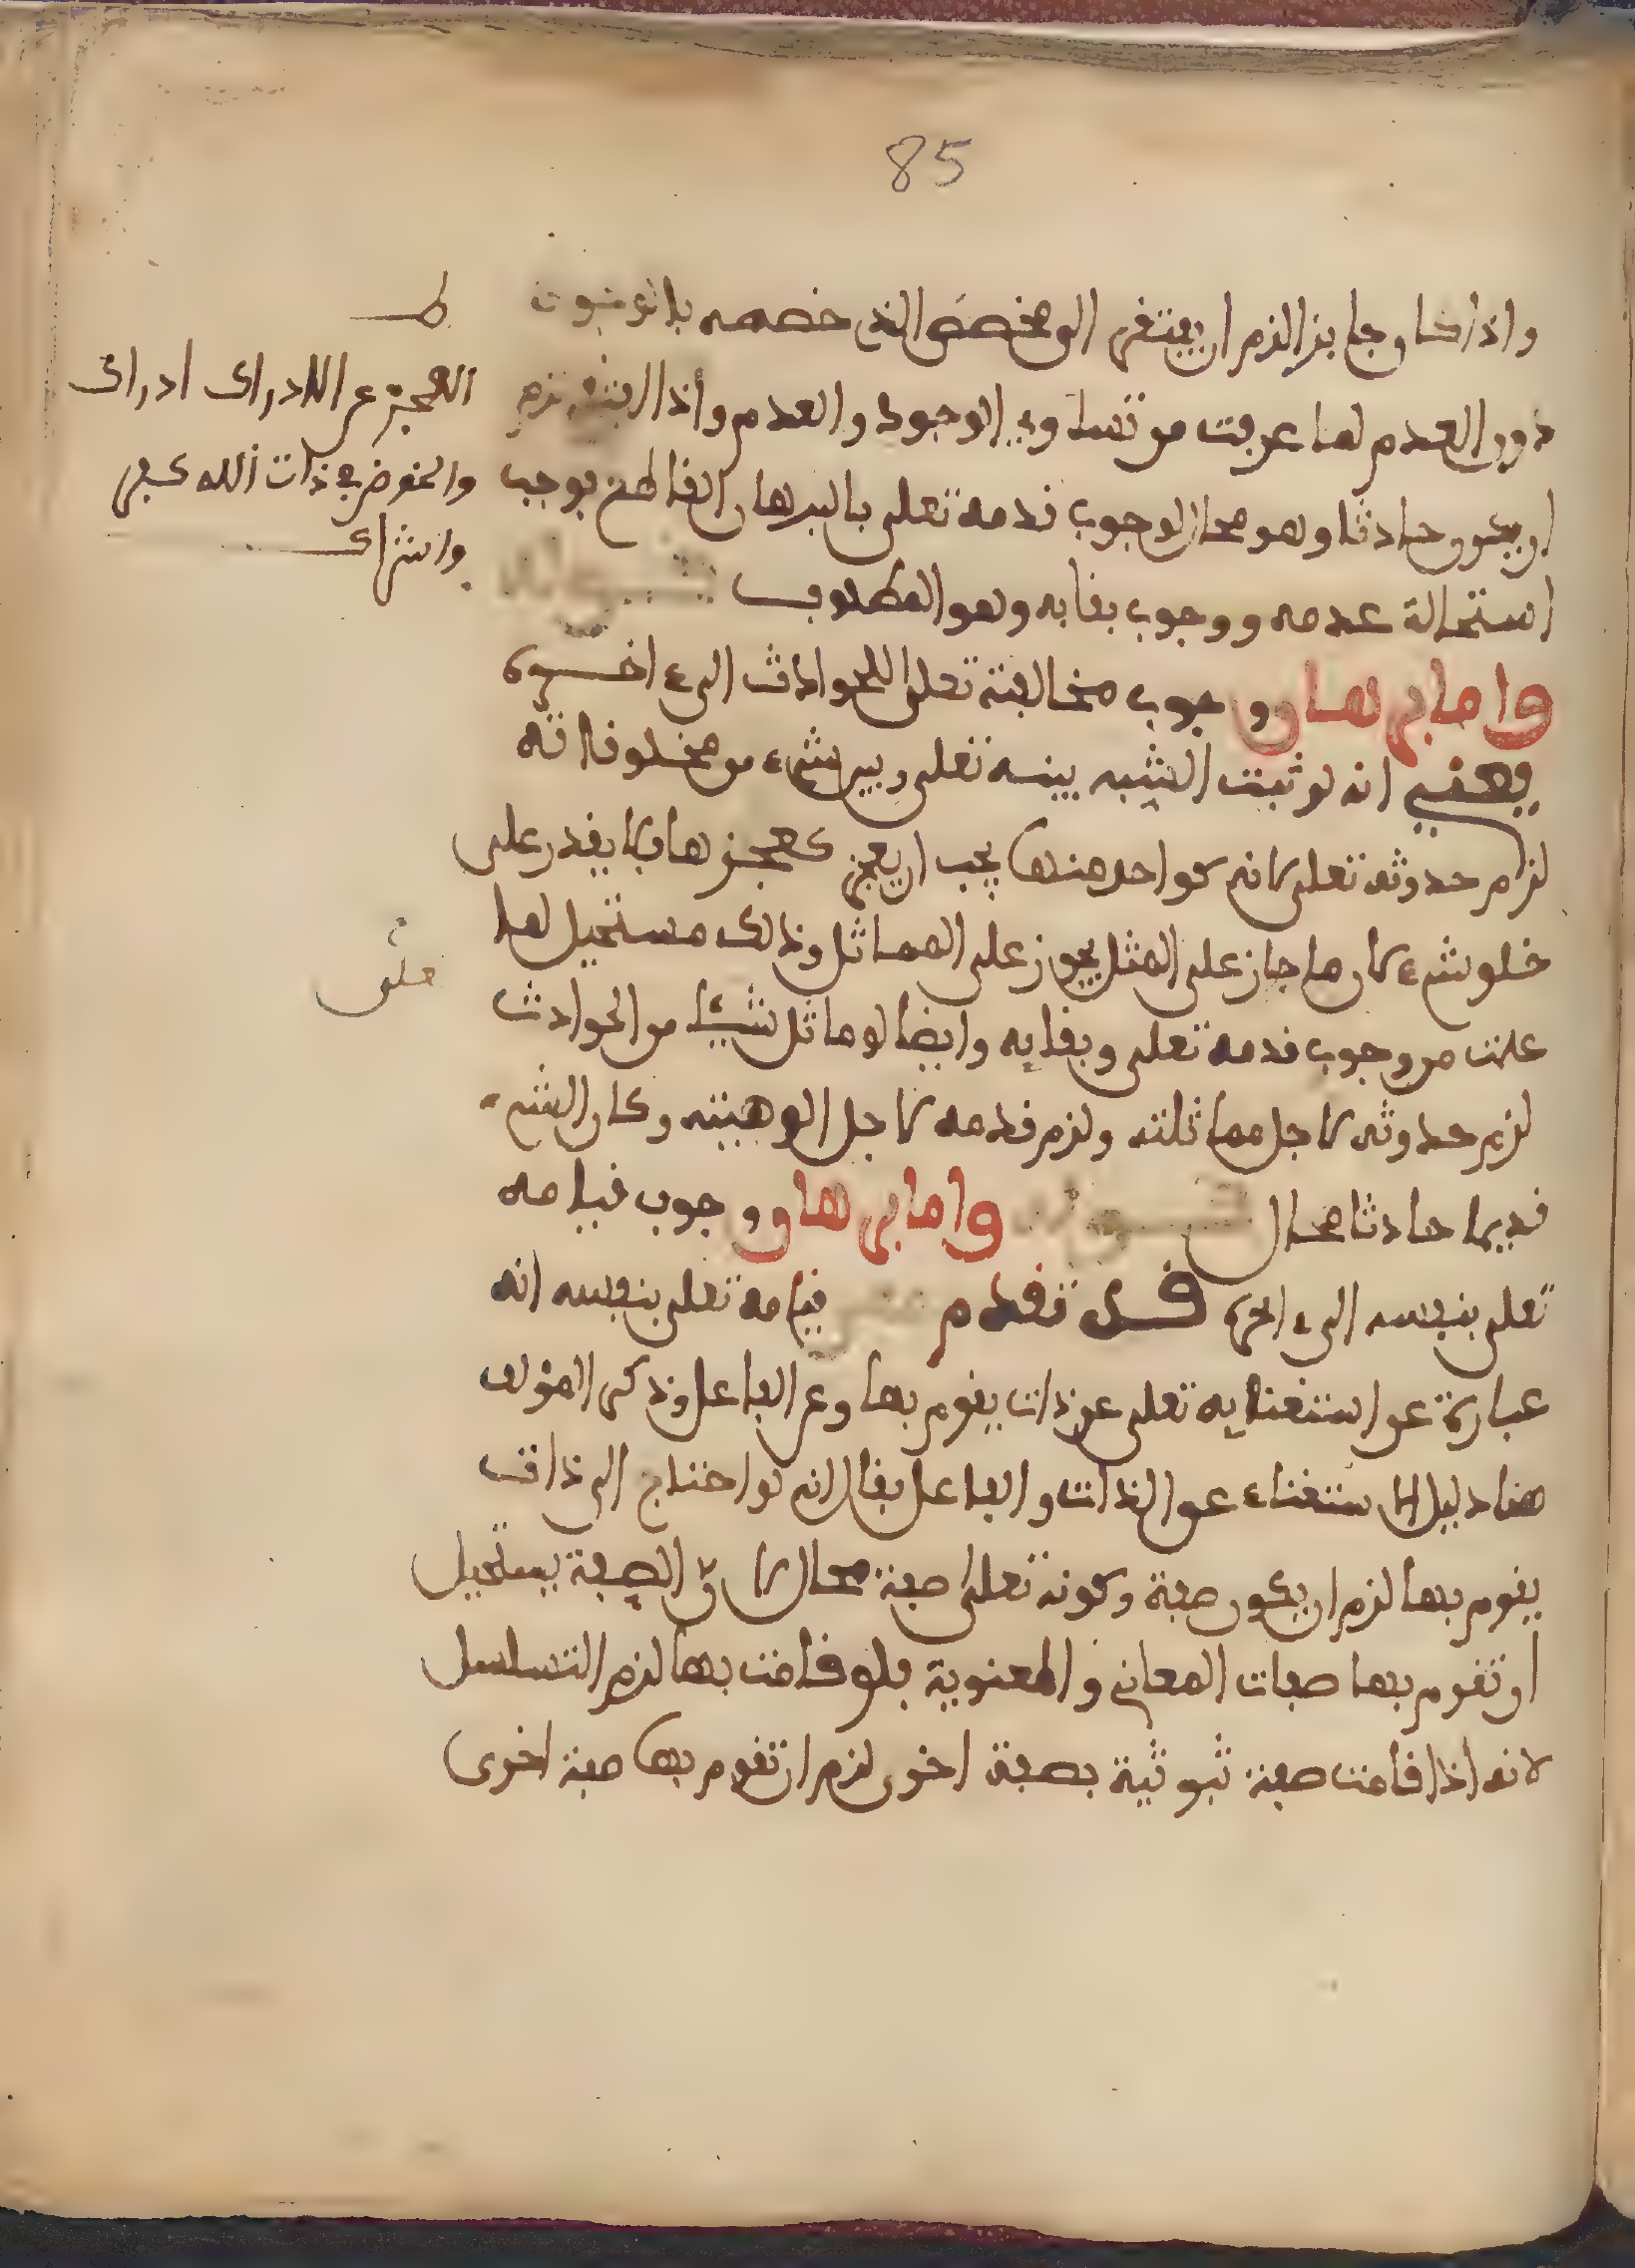 85
واذا كان جايز الزم ان يفتقر الى مخصص الذي خصصه بالوجود
دون العدم لما عرفت من تساوي الوجود والعدم واذا افتقر لزم
ان يكون حادثا وهو محال لوجوب قدمه تعلى بالبرهان القاطع بوجب
استحالة عدمه ووجوب بقايه وهو المطلوب
واما برهان وجوب مخالفته تعلى للحوادث الى ءاخره
يعني انه لو ثبت الشبه بينه تعلى وبين شيء من مخلوقاته
لزم حدوثه تعلى لانه كواحد منها يجب ان يعجز كعجزها فلا يقدر على
خلق شيء لان ما جاز على المثل يجوز على المماثل وذالك مستحيل لما
علمت من وجوب قدمه تعلى وبقايه وايضا لو ماثل شيئا من الحوادث
لزم حدوثه لاجل مماثلته ولزم قدمه لاجل الوهيته وكان الشيء
قديما حادثا محال واما برهان وجوب قيامه
تعلى بنفسه الى ءاخره قد تقدم قيامه تعلى بنفسه انه
عبارة عن استغنايه تعلى عن ذات يقوم بها وعن الفاعل وذكر المؤلف
هنا دليل الاستغناء عن الذات والفاعل فقال انه لو احتاج الى ذات
يقوم بها لزم ان يكون صفة وكونه تعلى صفة محال لان الصفة يستحيل
ان تقوم بها صفات المعاني والمعنوية فلو قامت بها لزم التسلسل
لانه اذا قامت صفة ثبوتية بصفة اخرى لزم ان تقوم بها صفة اخرى
ط
العجز عن اللادراك ادراك
والخوض في ذات الله كفر
واشراك
خلق